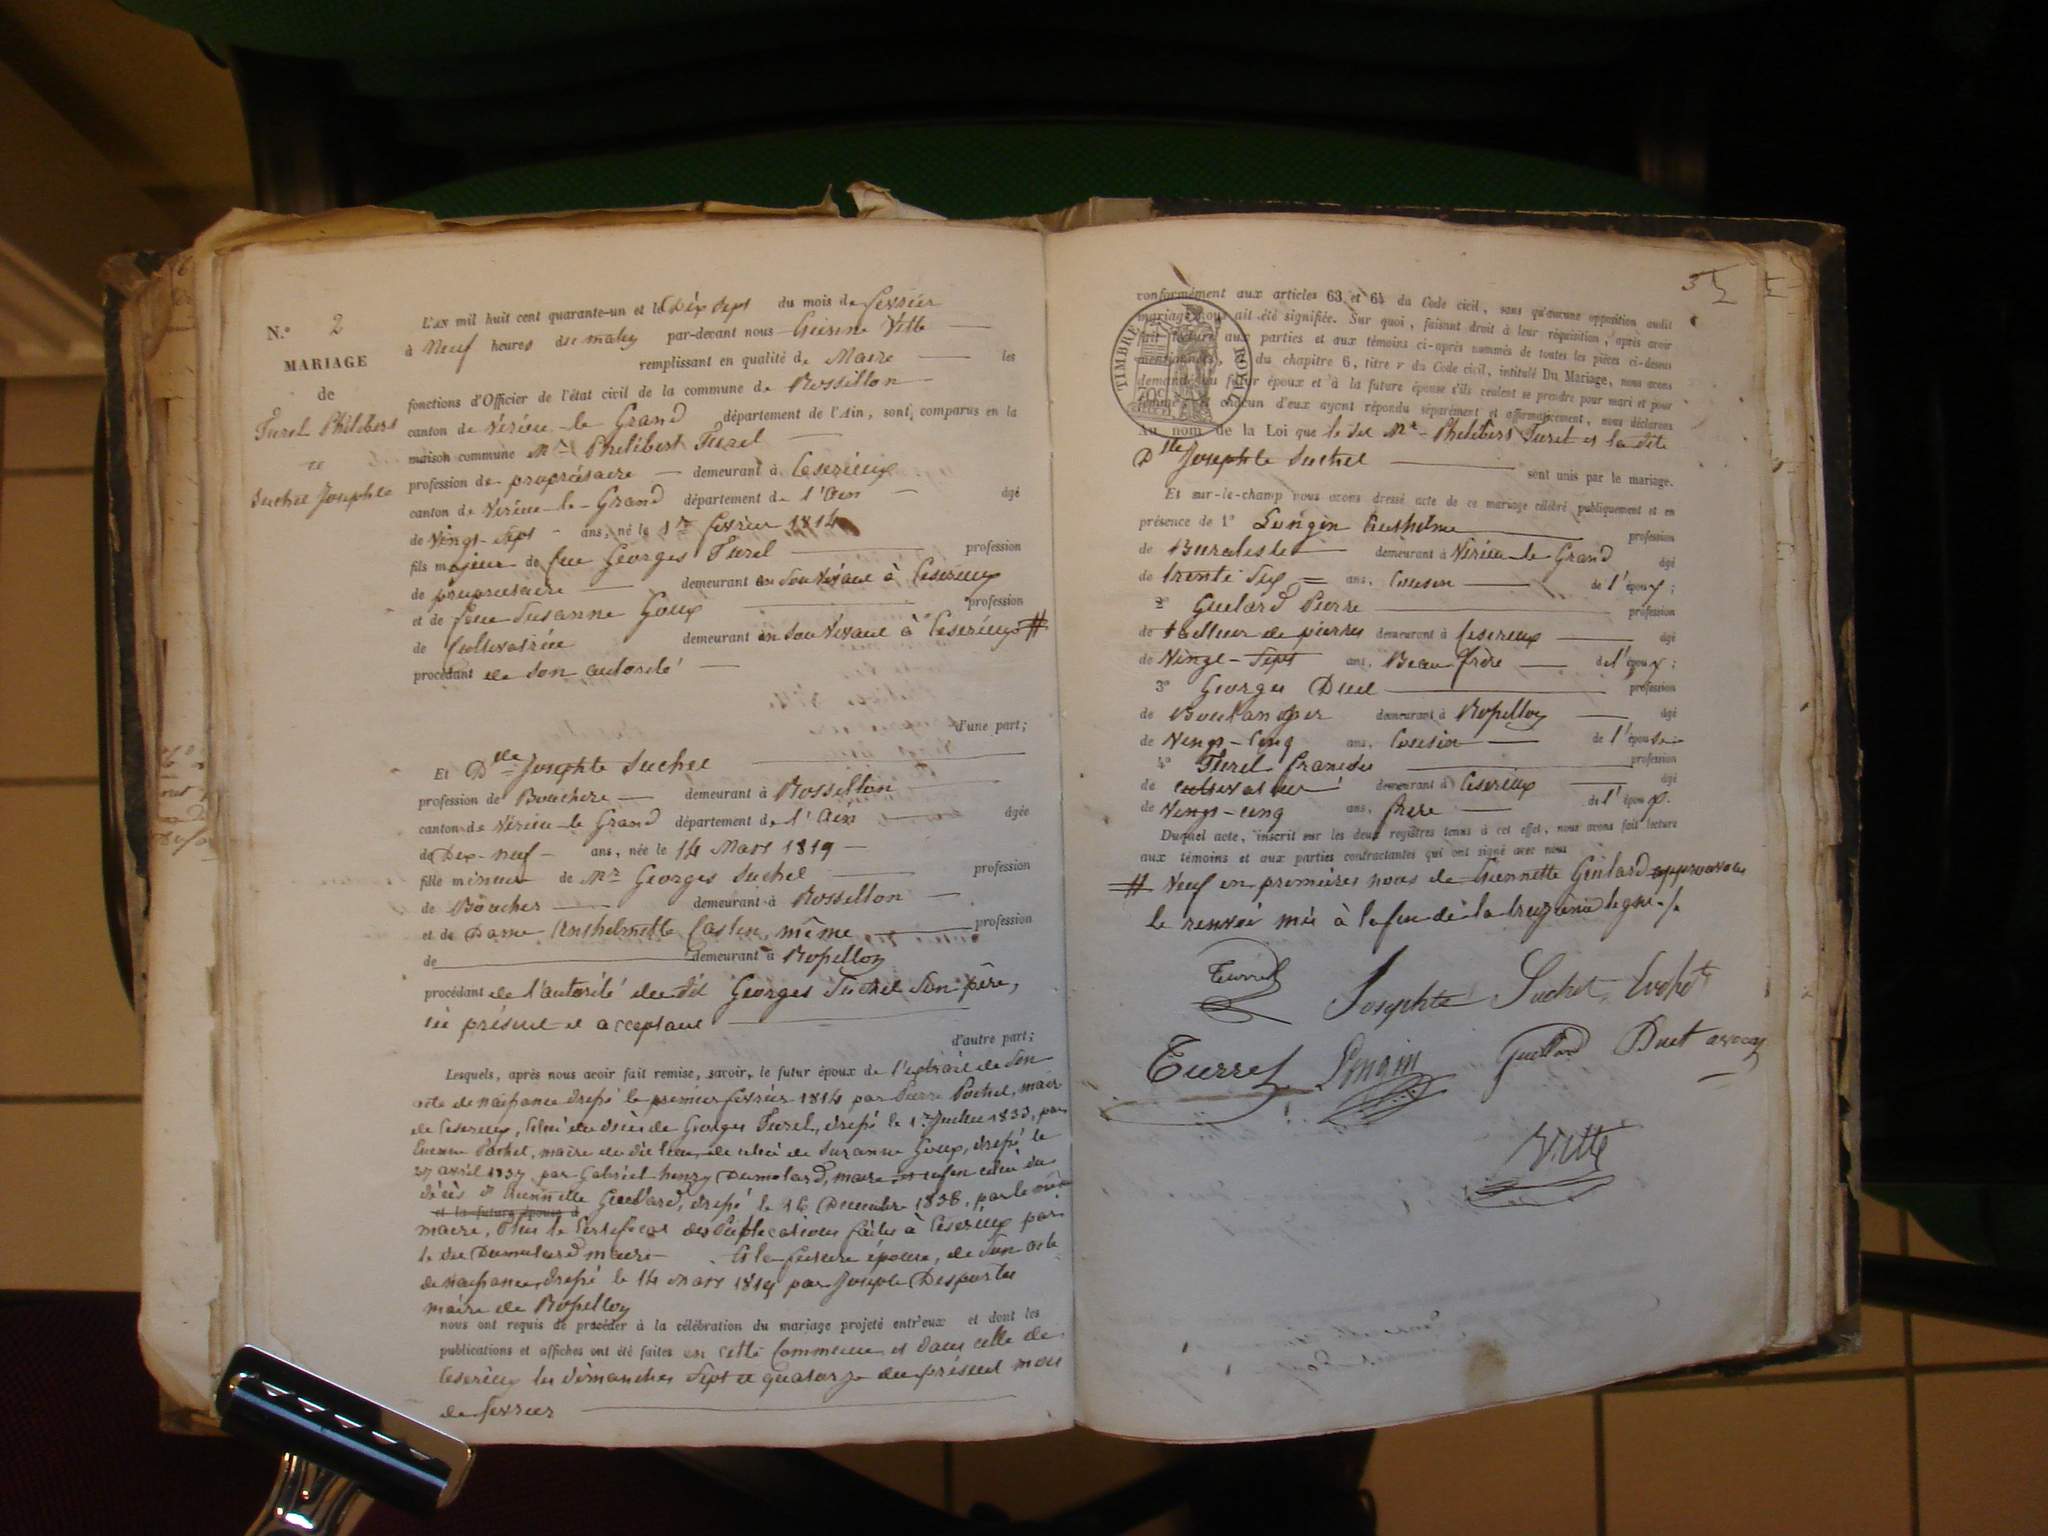 N.º 2
MARIAGE
de
Turel Philibert
et
Suchet Josephte
L'AN mil huit cent quarante-un et le Dix Sept du mois de fevrier
à Neuf heures du matin par-devant nous Etienne Vitte
remplissant en qualité de Maire les
fonctions d'Officier de l'état civil de la commune de Rossillon
canton de Virieu-le Grand département de l'Ain, sont comparus en la
maison commune Mr Philibert Turel
profession de propriétaire demeurant à Ceserieux
canton de Virieu-le-Grand département de l'Ain âgé
de Vingt-sept ans, né le 1er fevrier 1814
fils majeur de feu Georges Turel profession
de propriétaire demeurant en son vivant à Ceserieux
et de feue Susanne Goux profession
de Cultivatrice demeurant en son vivant à Ceserieux #
procédant de son autorité
d'une part;
Et Dlle Josephte Suchet
profession de Bouchere demeurant à Rossillon
canton de Virieu-le Grand département de l'Ain âgée
de Dix-neuf ans, née le 14 Mars 1819
fille mineure de Mr Georges Suchet profession
de Boucher demeurant à Rossillon
et de Dame Anthelmette Castin, même profession
de demeurant à Rossillon
procédant de l'autorité du dit Georges Suchet son père,
ici présent et acceptant
d'autre part;
Lesquels, après nous avoir fait remise, savoir, le futur époux de l'extrait de son
acte de naissance dressé le premier fevrier 1814 par Pierre Pochet, maire
de Ceserieux, celui du décès de Georges Turel, dressé le 1er Juillet 1833, par
Etienne Pochet, maire du dit lieu, de celui de Suzanne Goux, dressé le
27 avril 1837 par Gabriel henry Dumolard, maire et enfin celui du
décès d'Etiennette Guillard, dressé le 16 Decembre 1838, par le même
et la future épouse d
maire, Plus le Certificat des Publications faites à Ceserieux par
le dit Dumolard maire Et la future épouse, de son acte
de naissance, dressé le 14 Mars 1819 par Joseph Desportes
maire de Rossillon
nous ont requis de procéder à la célébration du mariage projeté entr'eux et dont les
publications et affiches ont été faites en cette Commune et dans celle de
Ceserieux les dimanches Sept et quatorze du présent mois
de fevrier
conformément aux articles 63 et 64 du Code civil, sans qu'aucune opposition audit
mariage nous ait été signifiée. Sur quoi, faisant droit à leur réquisition, après avoir
fait lecture aux parties et aux témoins ci-après nommés de toutes les pièces ci-dessus
mentionnées, du chapitre 6, titre v du Code civil, intitulé Du Mariage, nous avons
demandé au futur époux et à la future épouse s'ils veulent se prendre pour mari et pour
femme; et chacun d'eux ayant répondu séparément et affirmativement, nous déclarons
TIMBRE ROYAL
Au nom de la Loi que le dit Mr Philibert Turel et la dite
Dlle Josephte Suchet sont unis par le mariage.
Et sur-le-champ nous avons dressé acte de ce mariage célébré publiquement et en
présence de 1º Longin Anthelme profession
de Buraliste demeurant à Virieu-le Grand âgé
de trente Six ans, Cousin de l'époux;
2º Guilard Pierre profession
de tailleur de pierres demeurant à Ceserieux âgé
de Vingt-Sept ans, Beau frère de l'époux;
3º Georges Duet profession
de Boulanger demeurant à Rossillon âgé
de Vingt-Cinq ans, Cousin de l'épouse
4º Turel francois profession
de cultivateur demeurant à Ceserieux âgé
de Vingt-cinq ans, frere de l'époux.
Duquel acte, inscrit sur les deux registres tenus à cet effet, nous avons fait lecture
aux témoins et aux parties contractantes qui ont signé avec nous
# Veuf en premières noces de Etiennette Guilard approuvons
le renvoi mis à la fin de la treizième ligne./.
Turrel Josephte Suchet Suchet
Turrel Longin Guillard Duet
Vitte